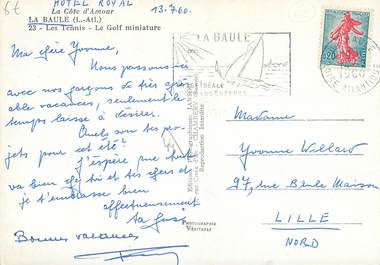 6€
HOTEL ROYAL
13.7.60.
La Côte d'Amour
LA BAULE (L.-Atl.)
23 - Les Tennis - Le Golf miniature
LA BAULE
IDÉALE
1960
LOIRE ATLANTIQUE
0,20
Ma chère Yvonne,
Nous passons ici
avec nos garçons de très agré
able vacances, seulement le
temps laisse à désirer.
Quels son tes pro
jets pour cet été?
J'espère que tout
va bien chez toi et tes chers et
je t'embrasse bien
affectueusement
ta
Bonnes vacances
Reproduction Interdite
PHOTOGRAPHIE
VÉRITABLE
Madame
Yvonne Willard
97, rue Barble Maison
LILLE
NORD